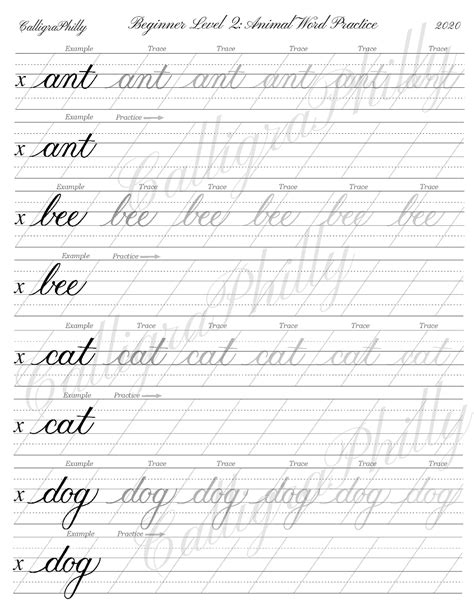 CalligraPhilly Beginner Level 2: Animal Word Practice 2020
Example Trace Trace Trace Trace Trace
x ant ant ant ant ant ant
Example Practice
x ant
CalligraPhilly
Example Trace Trace Trace Trace Trace
x bee bee bee bee bee bee
Example Practice
x bee
CalligraPhilly
Example Trace Trace Trace Trace Trace
x cat cat cat cat cat cat
Example Practice
x cat
CalligraPhilly
Example Trace Trace Trace Trace Trace
x dog dog dog dog dog dog
Example Practice
x dog